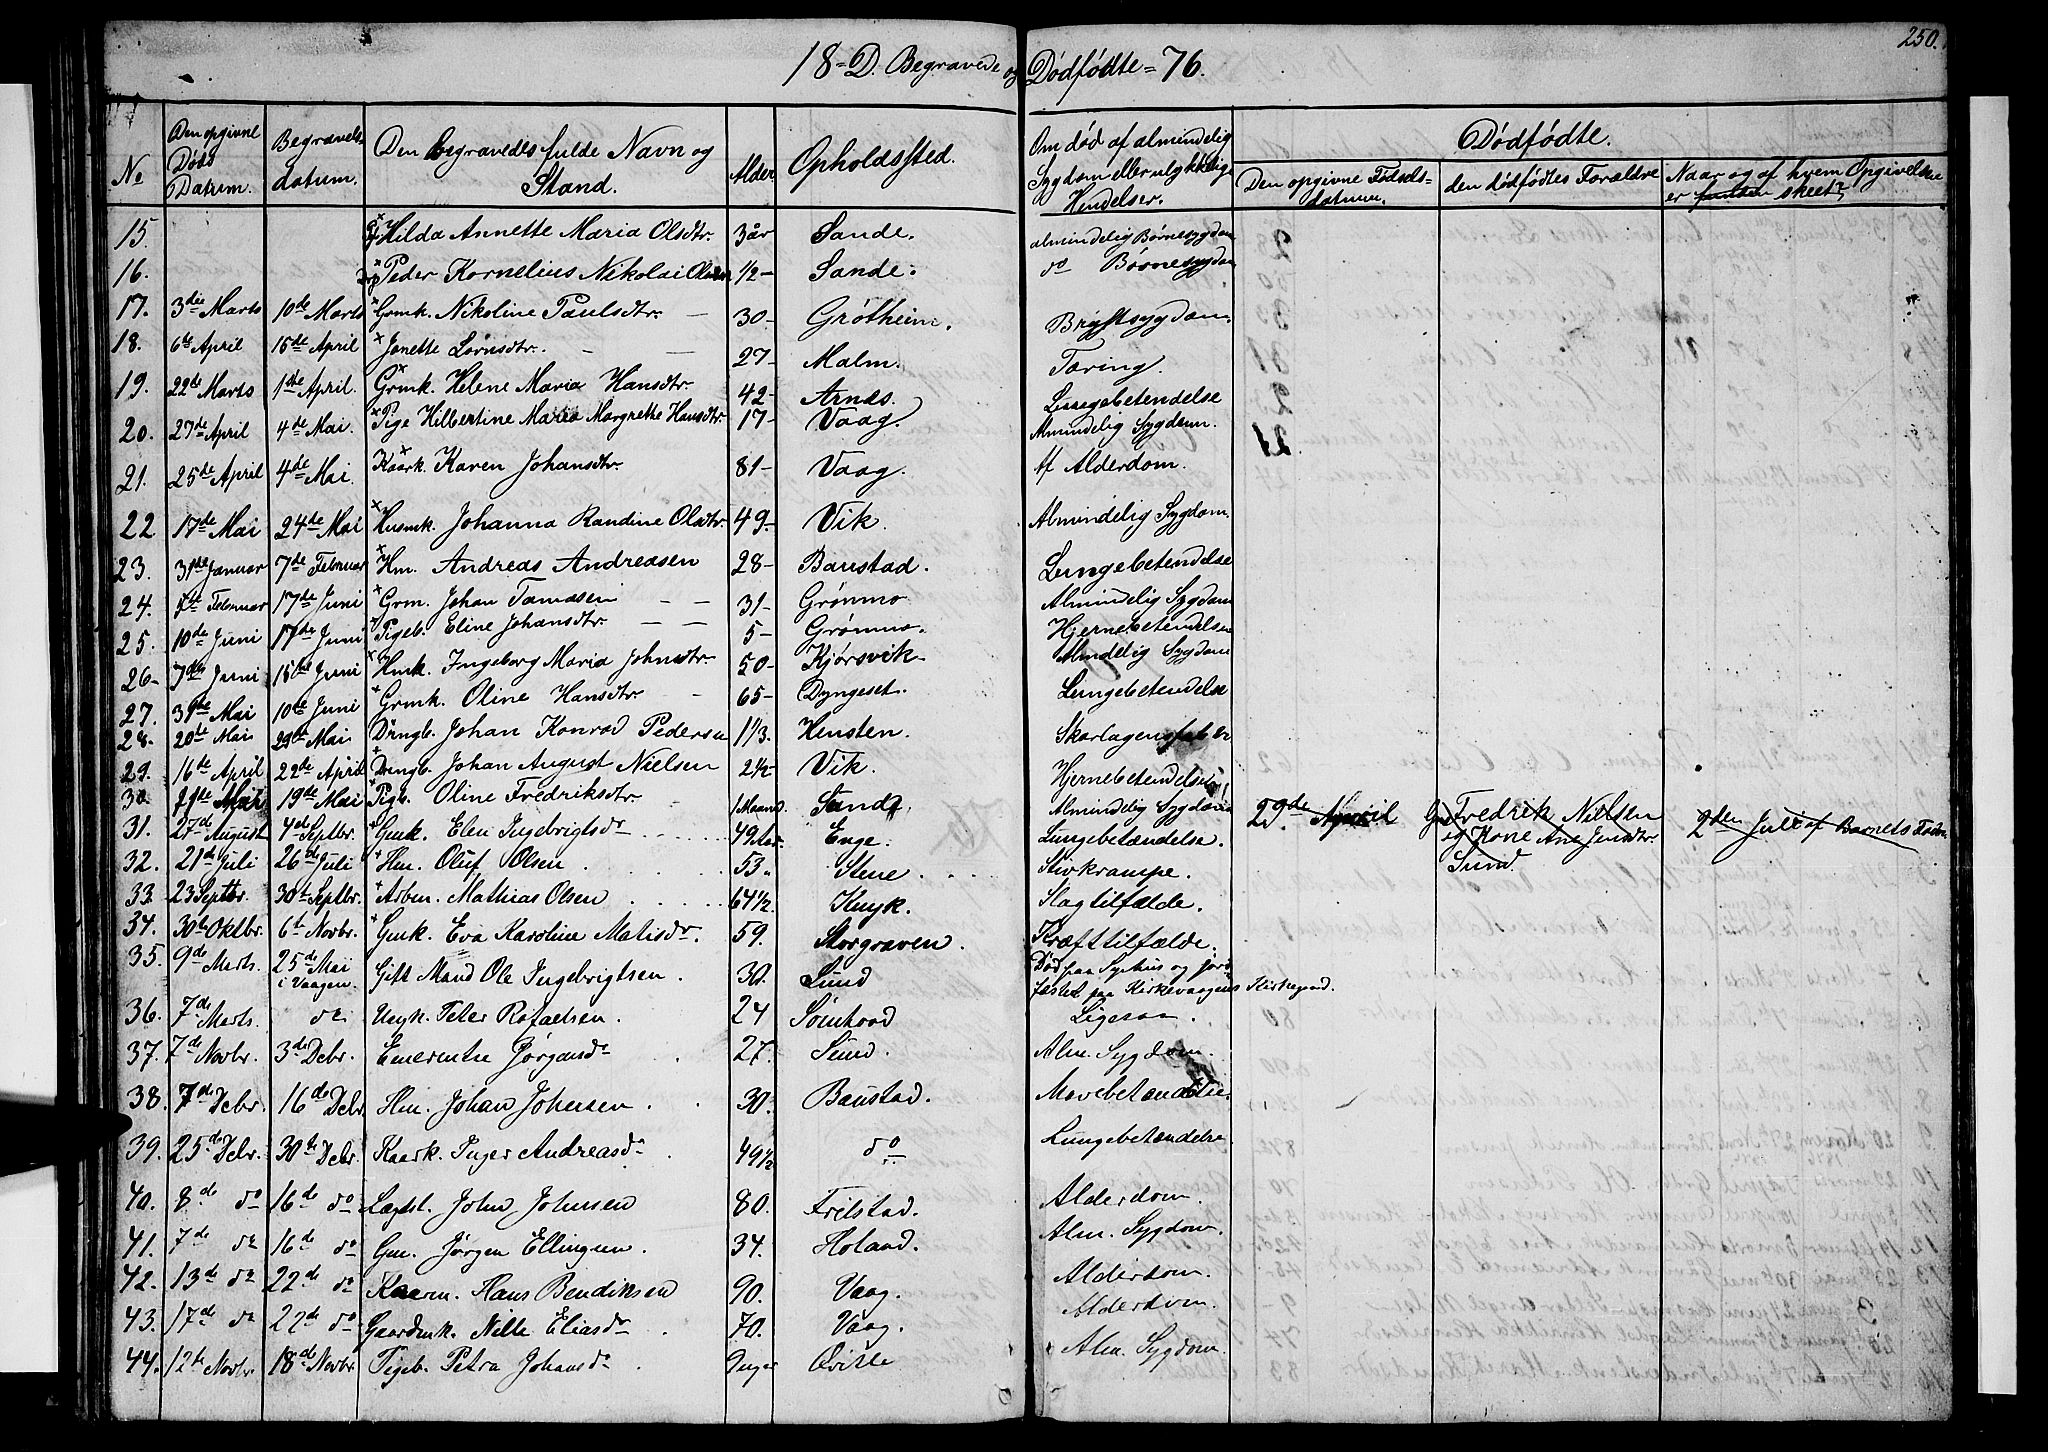 250.
18=D. Begravede og Dødfødte=76.
No
Den opgivne Døds Datum.
Begravels datum.
Den begravedes fulde Navn og Stand.
Alder.
Opholdssted.
Om død af almindelig Sygdom eller ulykkelige Hendelser.
Dødfødte.
Den opgivne Fødsels datum.
den dødfødtes Forældre
Naar og af hvem Opgivelsen er skeet?
15. Hilda Annette Maria Olsdtr. 3 år Sande. almindelig Børnesygdom
16. Peder Kornelius Nikolai Olsen 1/2 - Sande. do Børnesygdom
17. 3die Marts 10de Marts Grmk. Nikoline Paulsdtr. - 30- Grøtheim. Brystsygdom.
18. 6te April 15de April Janette Lornsdtr. - - 27- Malm. Tæring.
19. 22de Marts 1ste April. Grmk. Helene Maria Hansdtr. 42- Arnæs. Lungebetendelse
20. 27de April 4de Mai. Pige Hilbertine Maria Margrethe Hansdtr. 17- Vaag. Almindelig Sygdom.
21. 25de April 4de Mai. Kaark. Karen Johansdtr. 81- Vaag. Af Alderdom.
22 17de Mai 24de Mai Husmk. Johanna Randine Olsdtr. 49.- Vik. Almindelig Sygdom.
23. 31de Januar 7de Februar Hm. Andreas Andreasen 28- Baustad. Lungebetendelse
24. Februar 17de Juni Grm. Johan Tomasen - - 31- Grønmo Almindelig Sygdom
25. 10de Juni 17de Juni Pigeb. Eline Johansdtr. - - 5- Grønmo. Hjernebetendelse
26- 7de Juni 15de Juni Hmk. Ingeborg Maria Johnsdtr. 50- Kjørsvik Almindelig Sygdom
27. 31te Mai 10de Juni Grmk. Oline Hansdtr. - 65- Dyngeset. Lungebetendelse
28. 20de Mai 29de Mai Drngb. Johan Konrad Pedersen 1 1/3. Hensten. Skarlagensfeber
29. 16de April 22de April Drngb. Johan August Nielsen 2 1/2 - Vik. Hjernebetendelse
30 Mai 19de Mai Pigb. Oline Fredriksdtr. - 1 Maaned. Sund. Almindelig Sygdom 29de April Fredrik Nielsen
og Kone Ane Jensdtr. Sund. 2den Juli af Barnets Fader
31. 27de August 4de Septbr. Gmk. Elen Ingebrigtsdr 49 Aar. Enge. Lungebetændelse.
32. 21de Juli 26de Juli Hm. Oluf Olsen . . . . 53. Stene . . . . Stivkrampe.
33. 23 Septbr. 30te Septbr. Arbm. Mathias Olsen . . . . 64 1/2. Knyk. Slagtilfælde.
34. 30te Oktbr. 6te Novbr. Gmk. Eva Karoline Matisdr. 59. Storgraven. Kræfttilfælde.
35. 9de Marts. 25de Mai i Vaagen. Gift Mand Ole Ingebrigtsen . 30. Sund Død paa Sychus og jord-
fæstet paa Kirkevaagens Kirkegaard.
36. 7de Marts. do Ungk. Peter Rafaelsen . 24 Ligesaa .
37. 7de Novbr. 3de Debr. Emerentse Jørgensdr . 27. Sund. Alm. Sygdom.
38. 7de Debr. 16de Debr. Hm. Johan Johnsen . . 30. Baustad. Mavebetændelse.
39. 25de Debr. 30te Debr. Kaark. Inger Andreasdr . 49 1/2 do Lungebetændelse.
40. 8de do 16de do Lægdsl. John Johnsen 80. Frilstad. Alderdom.
41. 7de do 16de do Gm. Jørgen Ellingsen . 34. Holand. Alm. Sygdom.
42. 13de do 22de do Kaarm. Hans Bendiksen 90. Vaag. Alderdom.
43. 17de do 22de do Gaardmk. Nille Eliasdr . 70. Vaag. Alderdom.
44. 12te Novbr. 18de Novbr. Pigeb. Petra Johansdr . Quisle Alm. Sygdom.